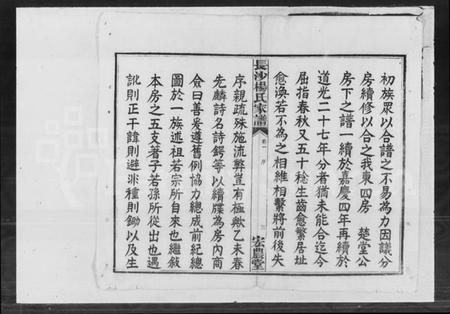 初族眾以合譜之不易為力因議分
房續修以合之我東四房　楚堂公
房下之譜一續於嘉慶四年再續於
道光二十七年分者猶未能合迄今
屈指春秋又五十稔生齒愈繁居址
愈渙若不為之相維相繫將前後失
長沙楊氏家譜
卷一　序
三
宏農堂
序親疏殊施流弊豈有極歟乙未春
先麟詩名詩鍔等以續牒為房內商
僉曰善爰遵舊例協力總成前紀總
圖於一族述祖若宗所自來也繼敘
本房之五支著子若孫所從出也遇
訛則正干諱則避非種則鋤以及生